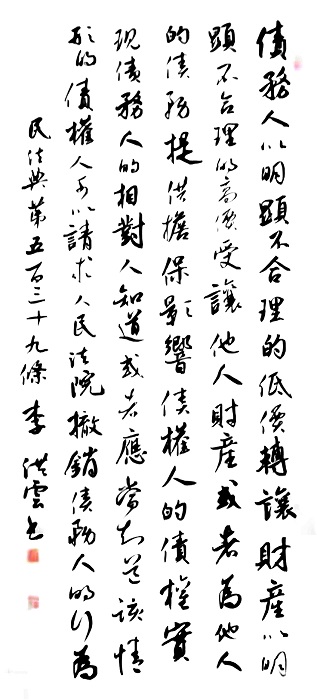 債務人以明顯不合理的低價轉讓財產以明
顯不合理的高價受讓他人財產或者為他人
的債務提供擔保影響債權人的債權實
現債務人的相對人知道或者應當知道該情
形的債權人可以請求人民法院撤銷債務人的行為
民法典第五百三十九條 李洪雲書